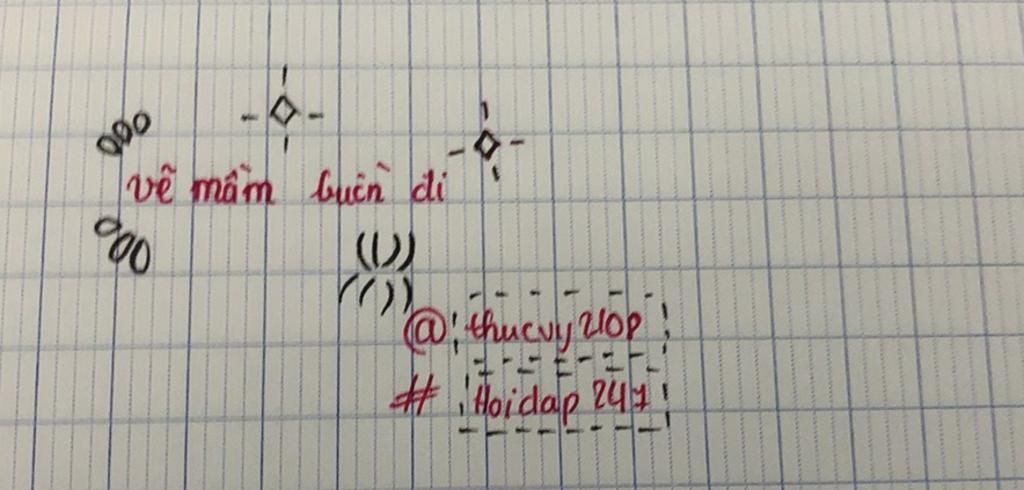 vẽ mầm buồn di
@ thucvy210p
# Hoidap 247